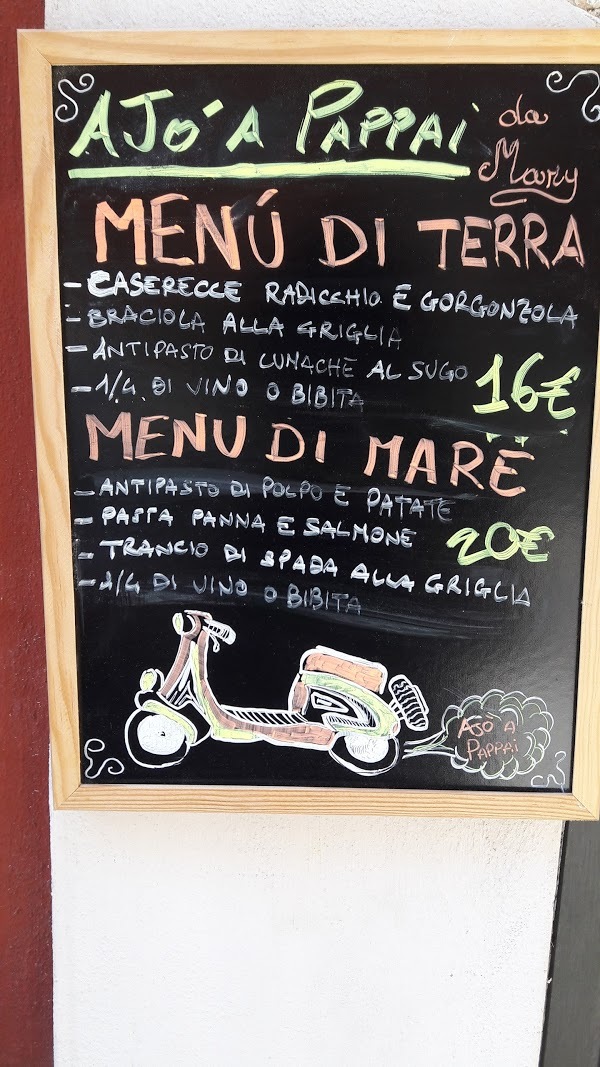 AJO' A PAPPAI
da Mary
MENÚ DI TERRA
- CASERECCE RADICCHIO E GORGONZOLA
- BRACIOLA ALLA GRIGLIA
- ANTIPASTO DI LUMACHE AL SUGO
- 1/4 DI VINO O BIBITA
16€
MENU DI MARE
- ANTIPASTO DI POLPO E PATATE
- PASTA PANNA E SALMONE
- TRANCIO DI SPADA ALLA GRIGLIA
- 1/4 DI VINO O BIBITA
20€
AJÒ A
PAPPAI